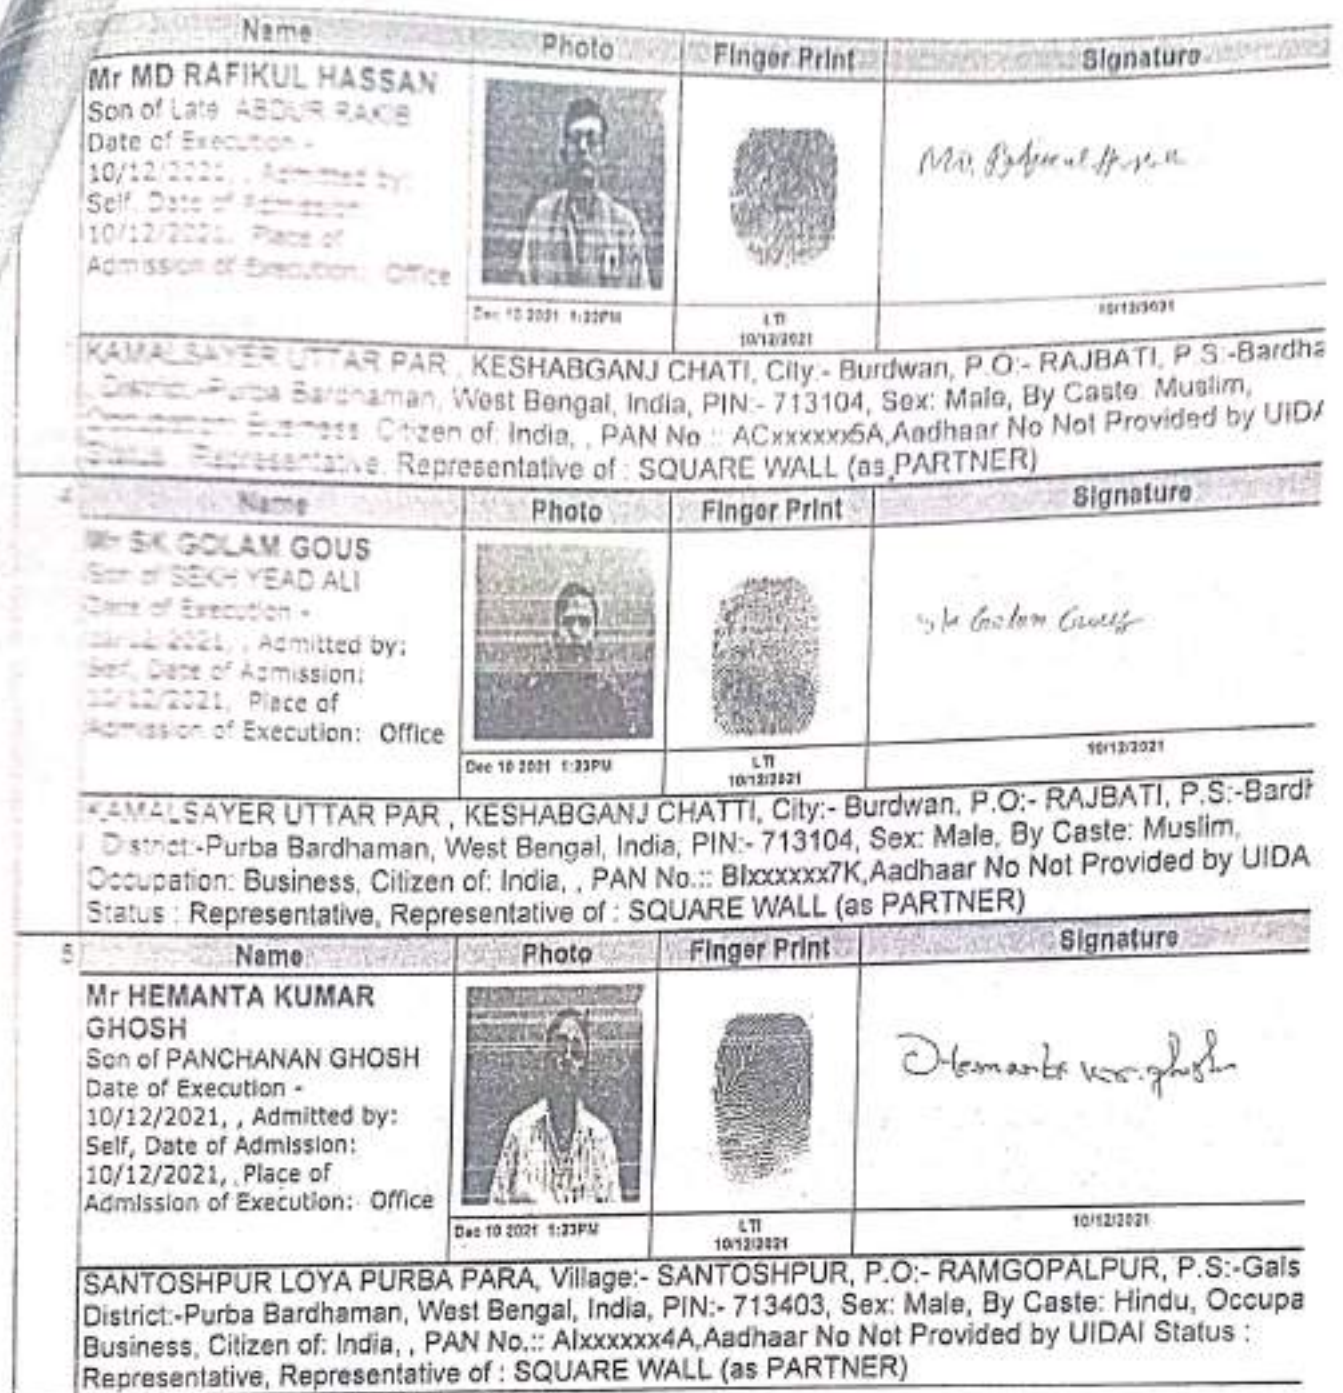 Name Photo Finger Print Signature
Mr MD RAFIKUL HASSAN
Son of Late ABDUR RAKIB
Date of Execution -
10/12/2021, , Admitted by:
Self, Date of Admission:
10/12/2021, Place of
Admission of Execution: Office
Dec 10 2021 1:22PM
LTI
10/12/2021
10/12/2021
KAMALSAYER UTTAR PAR , KESHABGANJ CHATI, City:- Burdwan, P.O:- RAJBATI, P.S:-Bardha
, District:-Purba Bardhaman, West Bengal, India, PIN:- 713104, Sex: Male, By Caste: Muslim,
Occupation: Business, Citizen of: India, , PAN No.:: ACxxxxxx5A,Aadhaar No Not Provided by UIDA
Status : Representative, Representative of : SQUARE WALL (as PARTNER)
4 Name Photo Finger Print Signature
Mr SK GOLAM GOUS
Son of SEKH YEAD ALI
Date of Execution -
10/12/2021, , Admitted by:
Self, Date of Admission:
10/12/2021, Place of
Admission of Execution: Office
Sk Golam Gous
Dec 10 2021 1:23PM
LTI
10/12/2021
10/12/2021
KAMALSAYER UTTAR PAR , KESHABGANJ CHATTI, City:- Burdwan, P.O:- RAJBATI, P.S:-Bardh
District:-Purba Bardhaman, West Bengal, India, PIN:- 713104, Sex: Male, By Caste: Muslim,
Occupation: Business, Citizen of: India, , PAN No.:: BIxxxxxx7K,Aadhaar No Not Provided by UIDA
Status : Representative, Representative of : SQUARE WALL (as PARTNER)
5 Name Photo Finger Print Signature
Mr HEMANTA KUMAR
GHOSH
Son of PANCHANAN GHOSH
Date of Execution -
10/12/2021, , Admitted by:
Self, Date of Admission:
10/12/2021, , Place of
Admission of Execution: Office
Hemanta kr. ghosh
Dec 10 2021 1:23PM
LTI
10/12/2021
10/12/2021
SANTOSHPUR LOYA PURBA PARA, Village:- SANTOSHPUR, P.O:- RAMGOPALPUR, P.S:-Gals
District:-Purba Bardhaman, West Bengal, India, PIN:- 713403, Sex: Male, By Caste: Hindu, Occupa
Business, Citizen of: India, , PAN No.:: AIxxxxxx4A,Aadhaar No Not Provided by UIDAI Status :
Representative, Representative of : SQUARE WALL (as PARTNER)